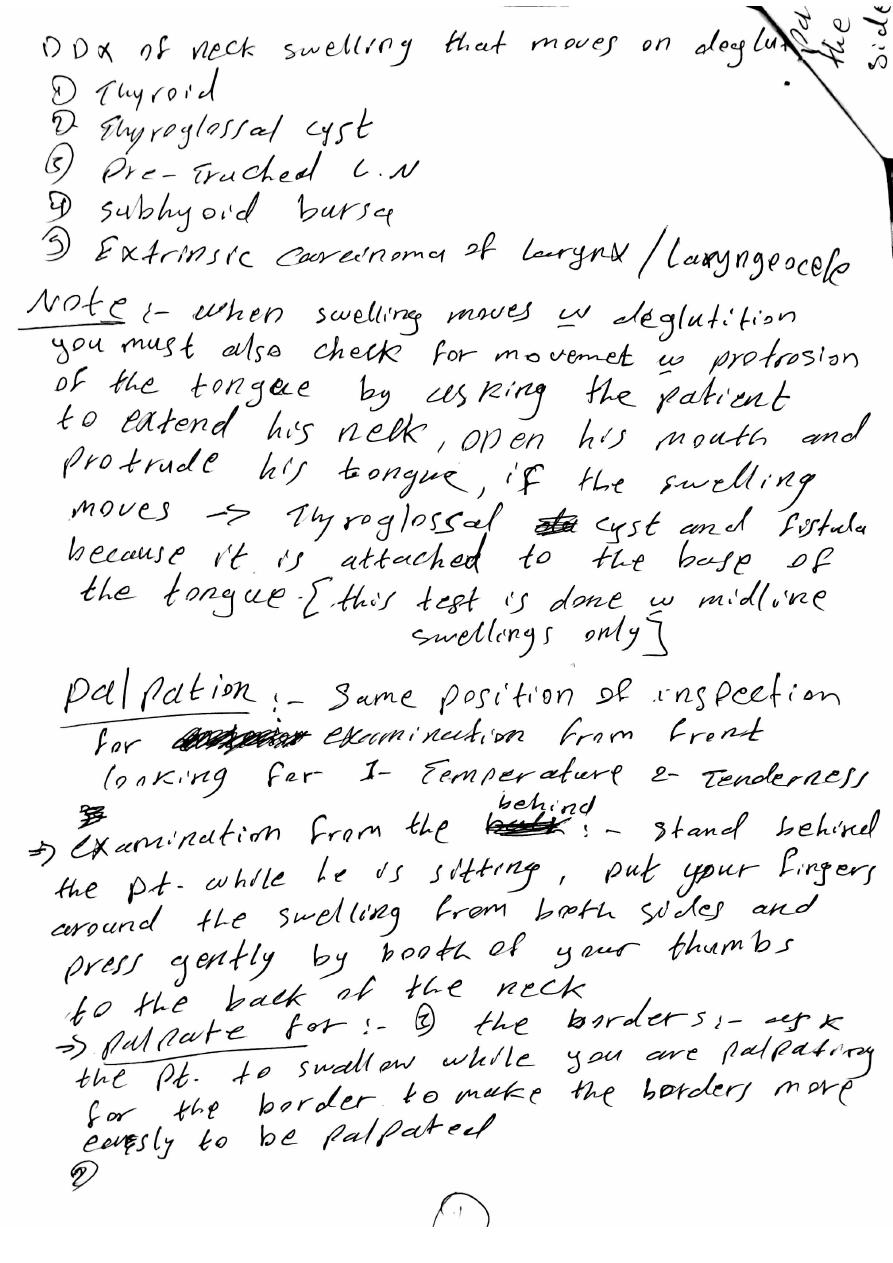 DDx of neck swelling that moves on deglut
① Thyroid
② Thyroglossal cyst
③ Pre-Tracheal L.N
④ subhyoid bursa
⑤ Extrinsic carcinoma of larynx / Laryngeocele
Note :- when swelling moves w deglutition
you must also check for movemet w protrosion
of the tongue by asking the patient
to extend his neck, open his mouth and
protrude his tongue, if the swelling
moves → Thyroglossal cyst and fistula
because it is attached to the base of
the tongue. [this test is done w midline
swellings only]
Palpation :- Same position of inspection
for examination from front
looking for 1- Temperature 2- Tenderness
⇒ examination from the behind :- stand behind
the pt. while he is sitting, put your fingers
around the swelling from booth sides and
press gently by booth of your thumbs
to the back of the neck
⇒ palpate for :- ① the borders :- ask
the pt. to swallow while you are palpating
for the border to make the borders more
easly to be palpated
②
1
pa
the
side